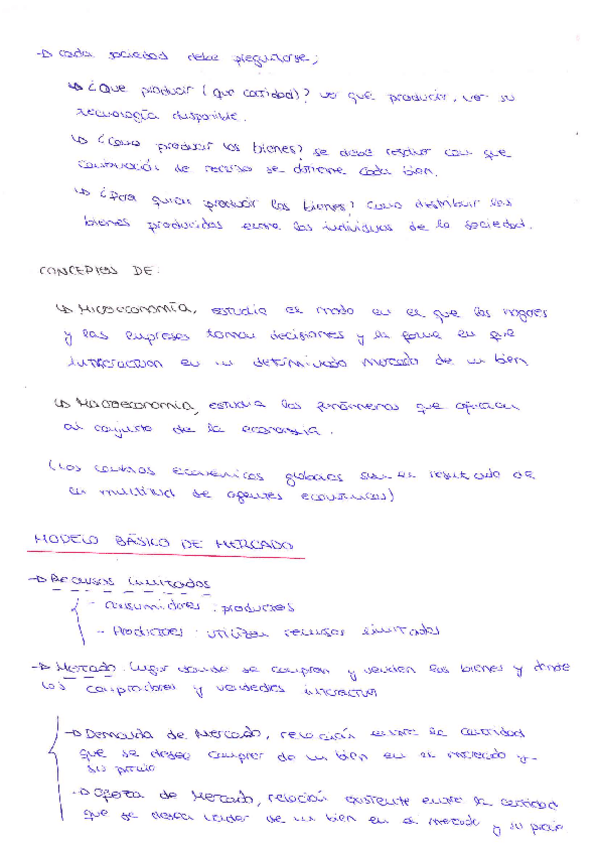 → Cada sociedad debe preguntarse;
↳ ¿Que producir (que cantidad)? ver que producir, ver su
tecnología disponible.
↳ ¿Como producir los bienes? se debe resolver con que
combinación de recursos se obtiene cada bien.
↳ ¿Para quien producir los bienes? Como distribuir los
bienes producidos entre los individuos de la sociedad.
CONCEPTOS DE:
↳ Microeconomía, estudia el modo en el que los hogares
y las empresas toman decisiones y la forma en que
interaccionan en un determinado mercado de un bien
↳ Macroeconomía, estudia los fenómenos que afectan
al conjunto de la economía.
(Los cambios económicos globales son el resultado de
la multitud de agentes económicos)
MODELO BÁSICO DE MERCADO
→ Recursos limitados
- Consumidores : productos
- Productores : utilizan recursos limitados
→ Mercado: lugar donde se compran y venden los bienes y donde
los compradores y vendedores interactúan
→ Demanda de Mercado, relación entre la cantidad
que se desea comprar de un bien en el mercado y
su precio
→ Oferta de Mercado, relación existente entre la cantidad
que se desea vender de un bien en el mercado y su precio